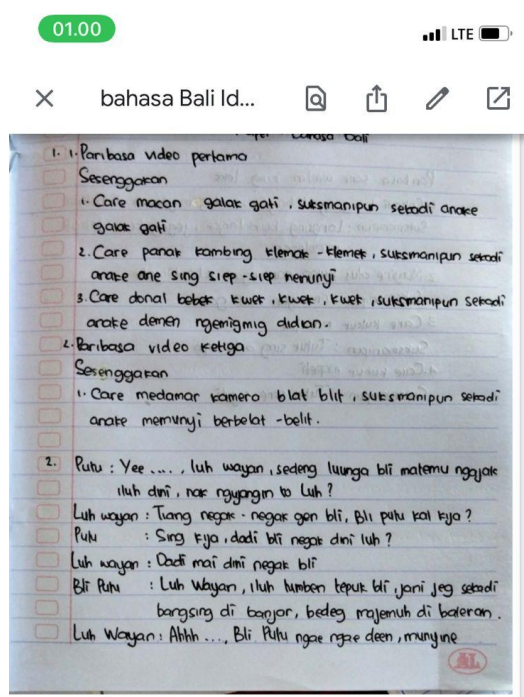 01.00
LTE
bahasa Bali Id...
Bali
1. 1. Paribasa video pertama
Sesenggakan
1. Care macan galak gati, suksmanipun sekadi anake
galak gati
2. Care panak kambing klemak-klemek, suksmanipun sekadi
anake ane sing siep-siep nerunyi
3. Care donal bebek kwek, kwek, kwek, suksmanipun sekadi
anake demen ngemigmig didian.
2. Paribasa video ketiga
Sesenggakan
1. Care medamar kamera blat blit, suksmanipun sekadi
anake memunyi berbelat-belit.
2. Putu : Yee ...., luh wayan, sedeng luunga bli matemu ngajak
iluh dini, nak ngyangin to Luh?
Luh wayan : Tiang negak-negak gen bli, Bli putu kal kija?
Putu : Sing kija, dadi bli negak dini luh?
Luh wayan : Dadi mai dini negak bli
Bli Putu : Luh Wayan, iluh tumben tepuk bli, jani jeg sekadi
bangsing di banjar, bedeg majemuh di baleran.
Luh Wayan : Ahhh ...., Bli Putu ngae ngae deen, munyine
AL